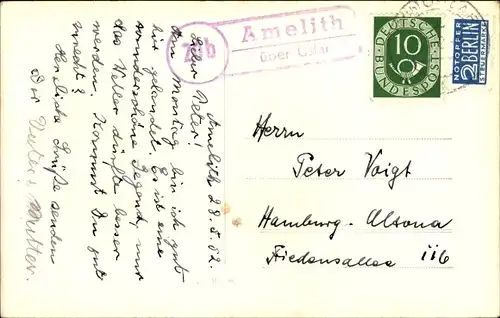 20b
Amelith
über Uslar
DEUTSCHE
BUNDESPOST
10
NOTOPFER
2 BERLIN
STEUERMARKE
Amelith 28.5.52.
Lieber Peter!
Am Montag bin ich gut
hier gelandet. Es ist eine
wunderschöne Gegend, nur
das Wetter dürfte besser
werden. Kommst Du gut
zurecht?
Herzliche Grüße senden
Dir
Mutter.
Herrn
Peter Voigt
Hamburg-Altona
Friedensallee 116